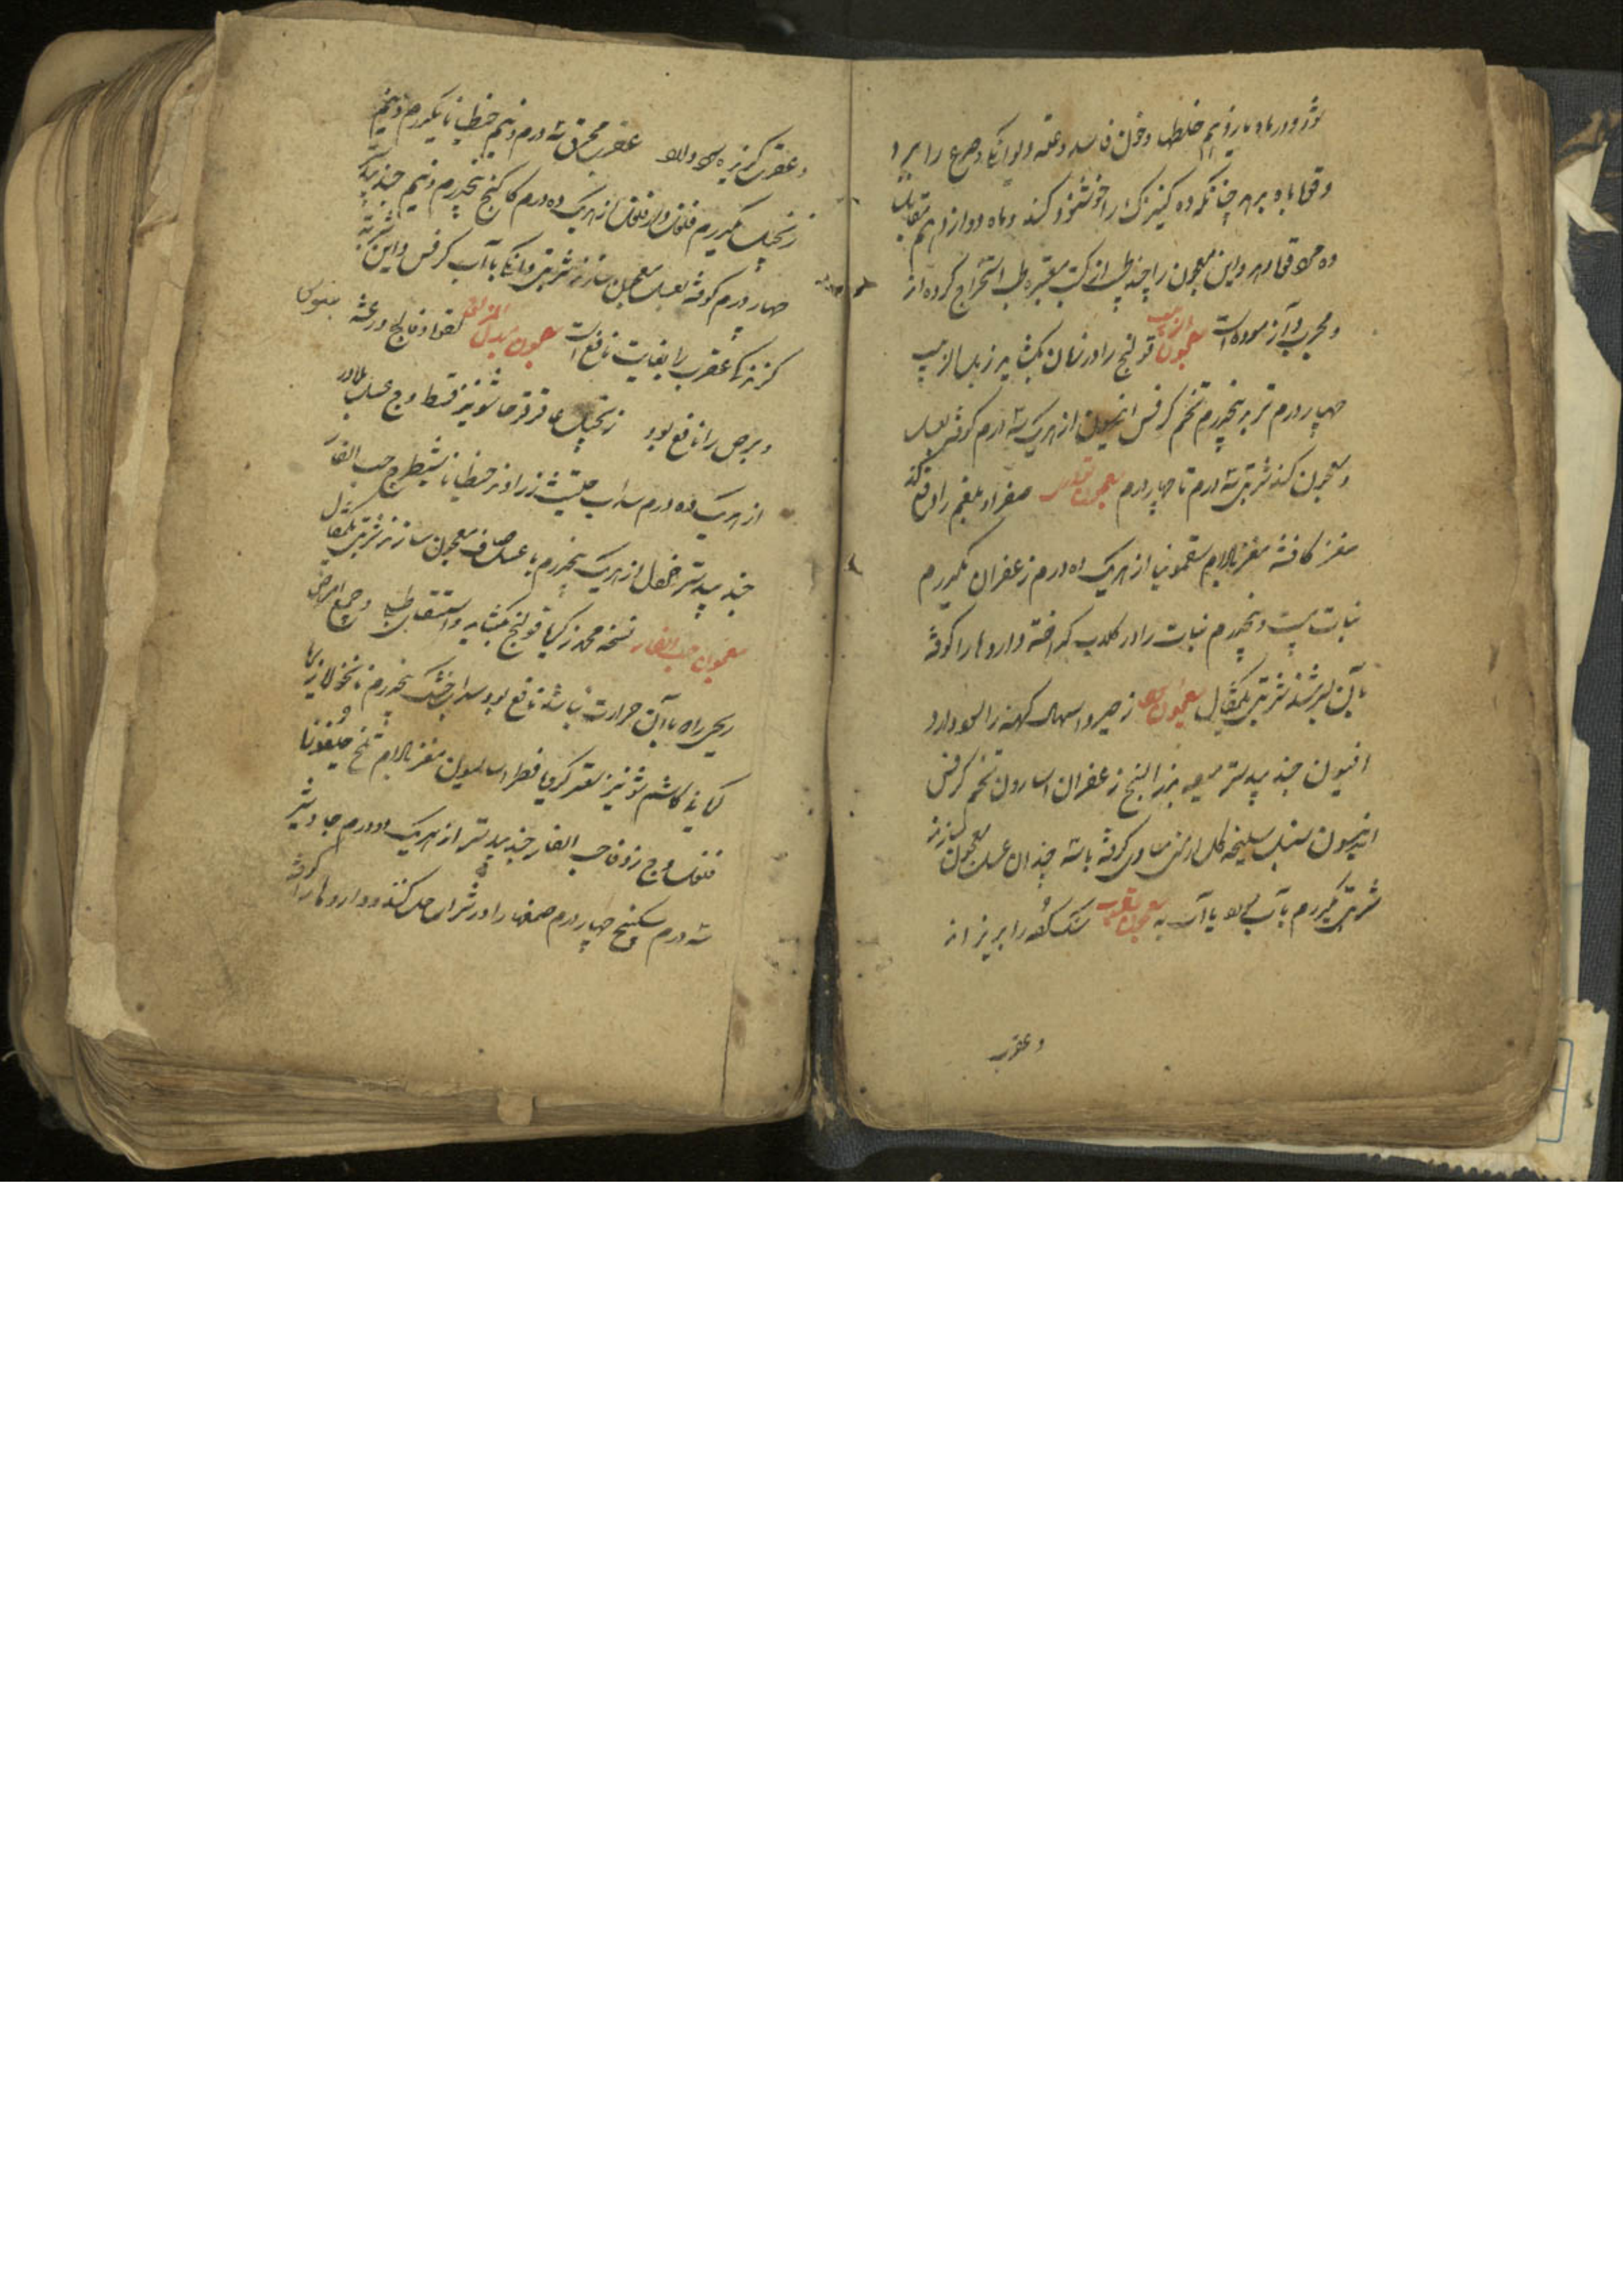 شود و در ماه یازدهم خلطها و خون فاسد و علقه و دیوانکی و صرع را ببرد
و قوت باه بدهد چنانکه ده کنیزک را خوشنود کند و ماه دوازدهم مقابل
ده مرد قوت دهد و این معجون را چند طبیب از کتب معتبره طب استخراج کرده اند
و مجرب و آزموده است معجون الزبیب قولنج را در زمان بکشاید زبل الذیب
چهار درم تربد پنجدرم تخم کرفس انیسون از هر یک سه درم کوفته بعسل
معجون کنند شربتی سه درم تا چهار درم معجون صفرا و بلغم را دفع کند
مغز کافشه مغز بادام سقمونیا از هر یک ده درم زعفران یکدرم
نبات بیست و پنجدرم نبات را در کلاب کداخته داروها را کوفته
بآن بسرشند شربتی یکمثقال معجون زحیر و اسهال کهنه را سود دارد
افیون جندبیدستر میعه بزرالبنج زعفران اسارون تخم کرفس
انیسون سنبل سلیخه کل ارمنی مساوی کوفته باسه چندان عسل معجون سازند
شربتی یکدرم بآب سرد یا آب به معجون عقرب سنک کرده را بریزاند
و عقرب
و عقرب کزیده عقرب محرق سه درم و نیم جنطیانا یکدرم و نیم
زنجبیل یکدرم فلفل دارفلفل از هر یک ده درم کاکنج پنجدرم و نیم جندبیدستر
چهار درم کوفته بعسل معجون سازند شربتی دانکی با آب کرفس و این شربه
کزندکی عقرب را بغایت نافع است معجون لقوه و فالج و رعشه
و برص را نافع بود زنجبیل عاقرقرحا شونیز قسط وج عسل بلادر
از هر یک ده درم سداب حلتیت زراوند جنطیانا شیطرج حب الغار
جندبیدستر خردل از هر یک پنجدرم با عسل صاف معجون سازند شربتی یکمثقال
معجون حب الغار نسخه محمد زکریا قولنج بکشاید و استسقای طبلی و جمیع امراض
ریحی را که با آن حرارت نباشد نافع بود سداب خشک پنجدرم نانخواه زیره
کاشم شونیز سعتر کرویا فطراسالیون مغز بادام تلخ
فلفل وج زوفا حب الغار جندبیدستر از هر یک دو درم جاوشیر
سه درم سکبینج چهار درم صمغها را در شراب حل کنند و داروها را کوفته